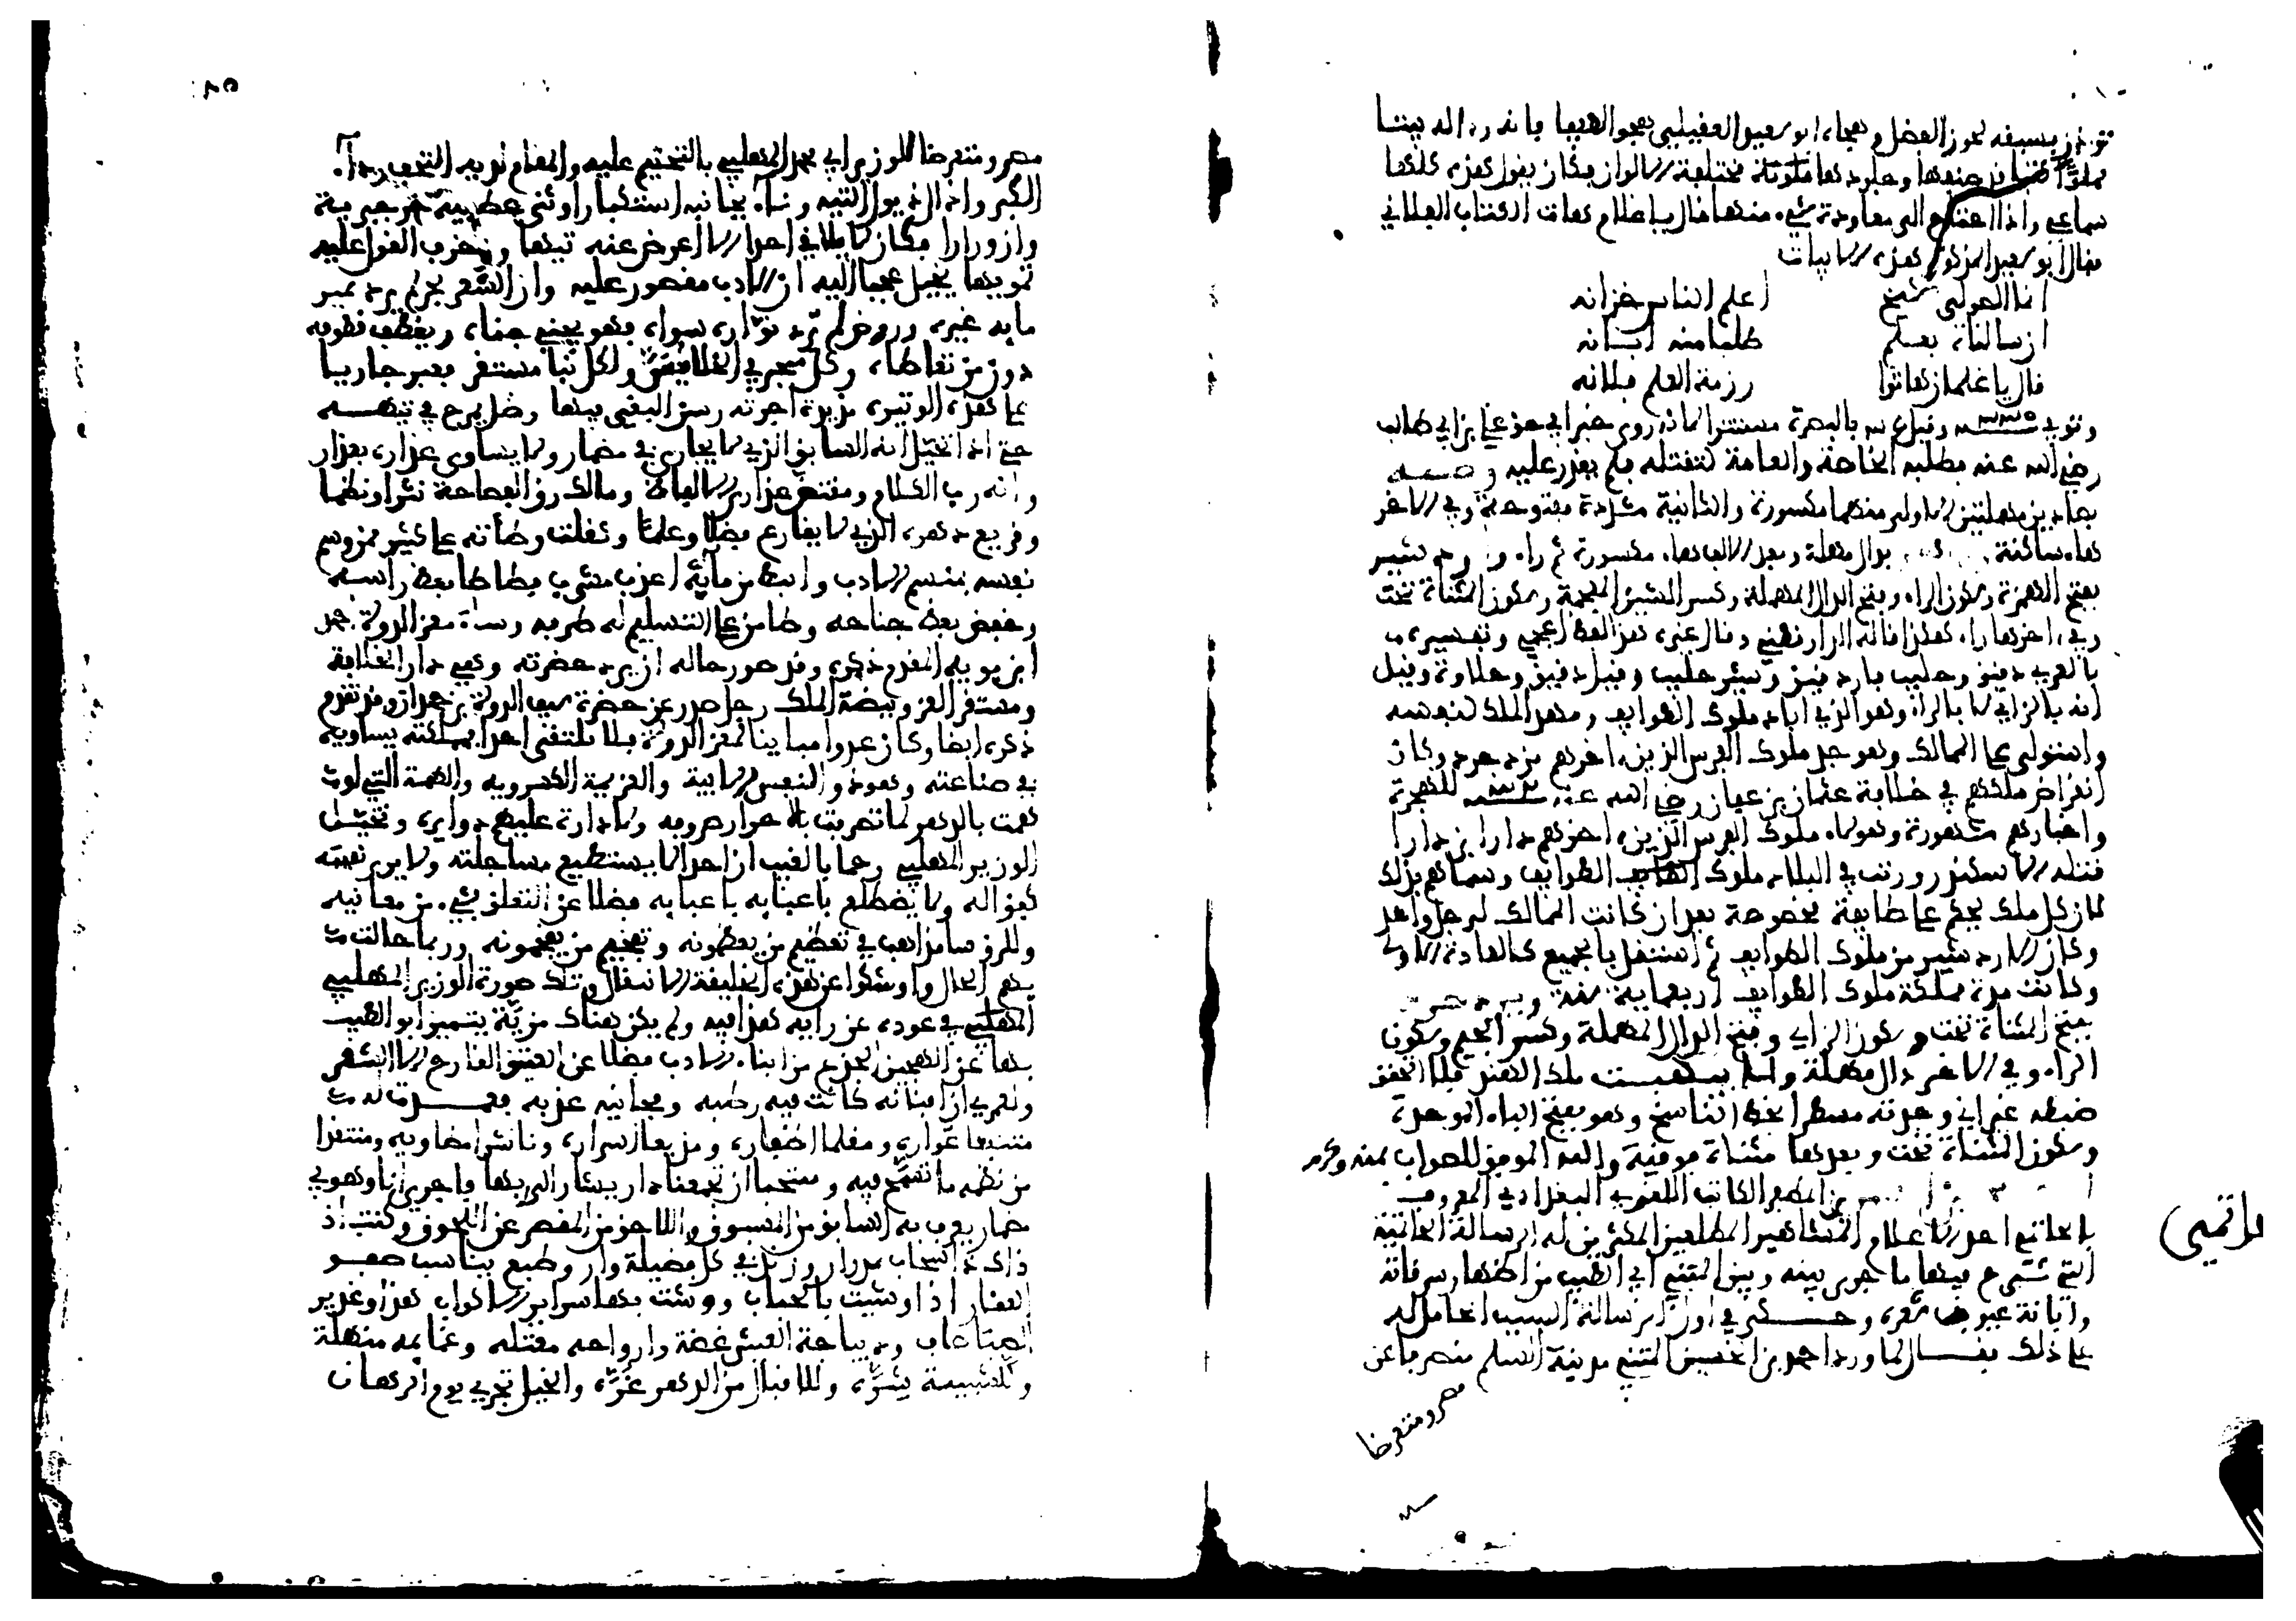 تؤذن بسبقه لحوز الفضل وهجاه ابو سعيد العقيلي بهجو الهجا فانه رد اله بيتا
مملوا كتبا قد صنفها وجلودها ملونة مختلفة الالوان فكان يقول هذه كلها
سماعي واذا احتاج الى معاودة شيء منها قال يا غلام هات الكتاب الفلاني
فقال ابو سعيد المذكور هذه الابيات
انما الصولي شيخ اعلم الناس خزانه
ان سالناه بعلم طلبا منه ابانه
قال يا غلمان هاتوا رزمة العلم فلانه
وتوفي سنة وقيل بالبصرة مستترا لانه روى خبرا في حق علي بن ابي طالب
رضي الله عنه فطلبه الخاصة والعامة لتقتله فلم يقدر عليه
بصادين مهملتين الاولى منهما مكسورة والثانية مشددة مفتوحة وفي الاخر
هاء ساكنة بدال مهملة وبعد الالف هاء مكسورة ثم راء واردشير
بفتح الهمزة وسكون الراء وبفتح الدال المهملة وكسر الشين المعجمة وسكون المثناة تحت
وفي اخرها راء هكذا قاله الدارقطني وقال غيره هذا لفظ اعجمي وتفسيره
بالعربي دقيق وحليب فارد دقيق وشير حليب وقيل دقيق وحلاوة وقيل
انه بالزاي لا بالراء وهو الذي اباد ملوك الطوايف ومهد الملك لنفسه
واستولى على الممالك وهو جد ملوك الفرس الذين اخرهم يزدجرد وكان
انقراض ملكهم في خلافة عثمان بن عفان رضي الله عنه سنة للهجرة
واخبارهم مشهورة وهولاء ملوك الفرس الذين اخرهم دارا بن دارا
قتله الاسكندر ورتب في البلاد ملوك الطوايف وسماهم بذلك
لان كل ملك يحكم على طايفة مخصوصة بعد ان كانت الممالك لرجل واحد
وكان اردشير من ملوك الطوايف ثم استقل بالجميع كالعادة الاولى
وكانت مدة مملكة ملوك الطوايف اربعماية سنة ويزدجرد
بفتح المثناة تحت وسكون الزاي وفتح الدال المهملة وكسر الجيم وسكون
الراء وفي الاخر دال مهملة واما بلهيت ملك الهند فلا اتحقق
ضبطه غير اني وجدته مسطرا بخط الناسخ وهو بفتح الباء الموحدة
وسكون المثناة تحت وبعدها مثناة فوقية والله الموفق للصواب بمنه وكرمه
بن المظفر الكاتب اللغوي البغدادي المعروف
بالحاتمي احد الاعلام المشاهير المطلعين المكثرين له الرسالة الحاتمية
التي شرح فيها ما جرى بينه وبين المتنبي ابي الطيب من اظهار سرقاته
وابانة عيوب شعره وحكى في اول الرسالة السبب الحامل له
على ذلك فقال لما ورد احمد بن الحسين المتنبي مدينة السلم منصرفا عن
مصر ومتعرضا
الحاتمي
مصر ومتعرضا للوزير ابي محمد المهلبي بالتخييم عليه والمقام لديه التحف رداء
الكبر واذال ذيول التيه ونأى بجانبه استكبارا وثنى عطفيه جبرية
وازورارا فكان لا يلاقي احدا الا اعرض عنه تيها وزخرف القول عليه
تمويها يخيل عجبا اليه ان الادب مقصور عليه وان الشعر بحر لم يرد نمير
مايه غيره وروض لم يرد نواره سواه فهو يجني جناه ويقطف قطوفه
دون من تعاطاه وكل مجر في الخلا يسر ولكل نبا مستقر فعبر جاريا
على هذه الوتيرة مديدة اجرته رسن البغي فيها وظل يمرح في تيهه
حتى اذا تخيل انه السابق الذي لا يجارى في مضمار ولا يساوى عذاره بعذار
وانه رب الكلام ومفتض عذارى الالفاظ ومالك رق الفصاحة نثرا ونظما
وقريع دهره الذي لا يقارع فضلا وعلما وثقلت وطأته على كثير ممن وسم
نفسه بميسم الادب وانبط من مايه اعذب مشرب فطاطا بعض راسه
وخفض بعض جناحه وطامن على التسليم له طرفه وساء معز الدولة احمد
ابن بويه المقدم ذكره وقد صور حاله ان يرد حضرته وهي دار الخلافة
ومستقر العز وبيضة الملك رجل صدر عن حضرة سيف الدولة بن حمدان وقد تقدم
ذكره ايضا وكان عدوا مباينا لمعز الدولة فلا يلتقي احدا بمملكته يساويه
في صناعته وهو ذو النفس الابية والعزيمة الكسروية والهمة التي لو
همت بالدهر لما تصرفت بالاحرار صروفه ولا دارت عليهم دوايره وتخيل
الوزير المهلبي رجما بالغيب ان احدا لا يستطيع مساجلته ولا يرى نفسه
كفؤا له ولا يضطلع باعبايه فضلا عن التعلق بشيء من معانيه
وللروسا مذاهب في تعظيم من يعظمونه وتفخيم من يفخمونه وربما حالت
بهم الحال واوشكوا عن هذه الخليقة الانتقال وتلك صورة الوزير المهلبي
في عوده عن رايه هذا فيه ولم يكن هناك مزية يتميز ابو الطيب
بها عن الهجين الجذع من ابناء الادب فضلا عن العتيق القارح الا الشعر
ولعمري ان افنانه كانت فيه رطبة ومجانيه عذبة فنهدت له
متتبعا عواره ومقلما اظفاره ومذيعا اسراره وناشرا مطاويه ومنتقدا
من نظمه ما تسمح فيه ومتحينا ان تجمعنا دار يشار الى ربها فاجري انا وهو في
مضمار يعرف به السابق من المسبوق واللاحق من المقصر عن اللحوق وكنت اذ
ذاك ذا سحاب مدرار وزند في كل فضيلة وار وطبع يناسب صفو
العقار اذا وشيت بالحباب ووشت بها سراير الاكواب هذا وغدير
الصبا صاف وديباجة العيش غضة وارواحه معتلة وغمايمه منهلة
وللشبيبة شرة وللاقبال من الدهر غرة والخيل تجري يوم الرهان